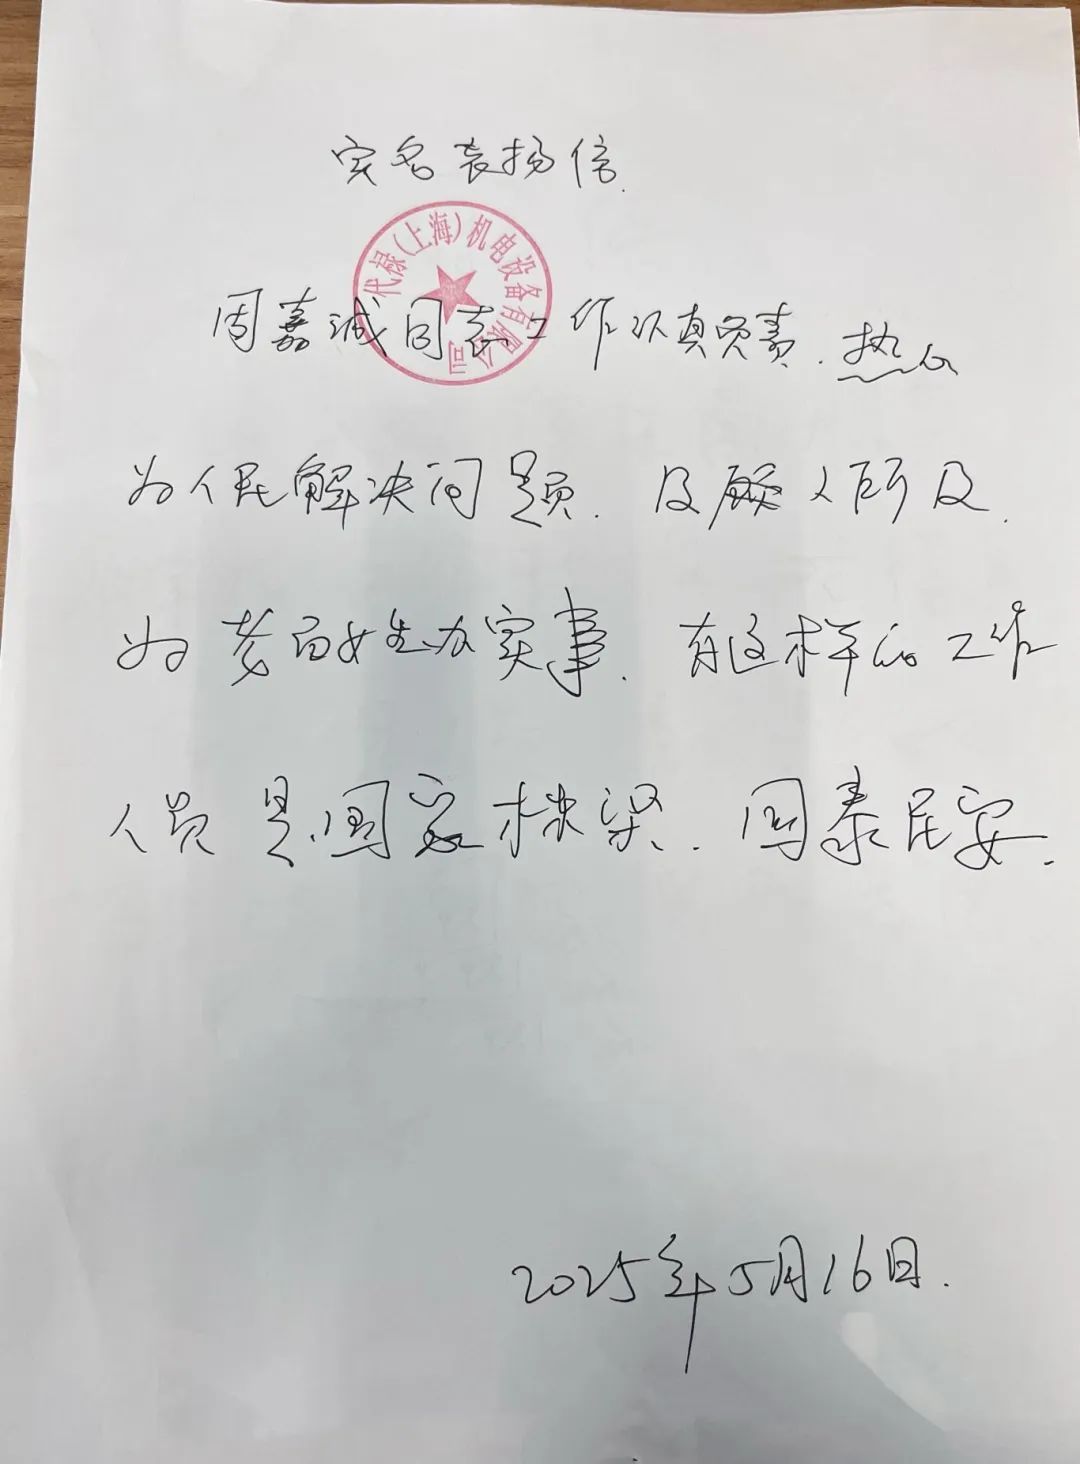 实名表扬信.
代禄(上海)机电设备有限公司
周嘉诚同志工作认真负责.热心
为人民解决问题.及人所及.
为老百姓办实事.有这样的工作
人员是国家栋梁.国泰民安.
2025年5月16日.